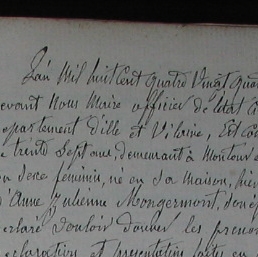 L'an Mil huit Cent quatre Vingt qua
evant Nous Maire officier de l'état
epartement d'ille et Vilaine, Est co
trente Sept ans, demeurant à Montour
Sexe feminin, né en Sa maison, hier
d'Anne Julienne Mongermont, son ép
claré Vouloir donner les prenom
claration et présentation faites en